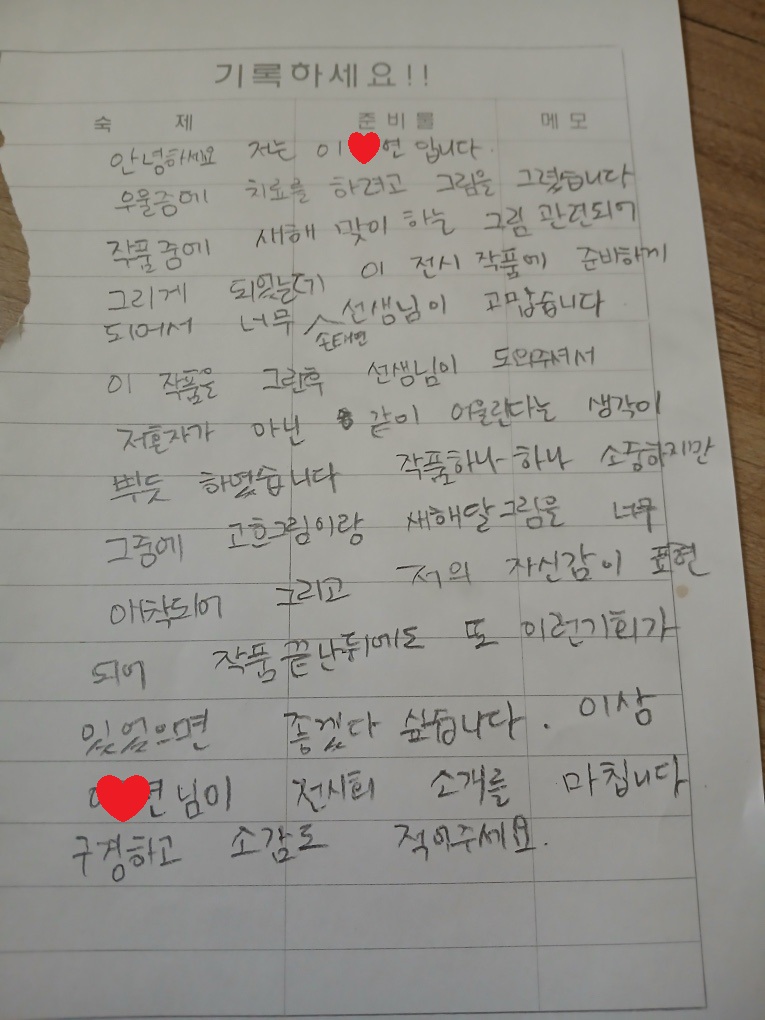 기록하세요!!
숙 제 준비물 메모
안녕하세요 저는 이 연 입니다.
우울증에 치료를 하려고 그림을 그렸습니다
작품중에 새해 맞이 하는 그림 관련되어
그리게 되었는데 이 전시 작품에 준비하게
되어서 너무 손태연 선생님이 고맙습니다
이 작품을 그린후 선생님이 도와주셔서
저혼자가 아닌 같이 어울린다는 생각이
뿌듯 하였습니다 작품하나-하나 소중하지만
그중에 고흐그림이랑 새해달그림을 너무
애착되어 그리고 저의 자신감이 표현
되어 작품끝난뒤에도 또 이런기회가
있었으면 좋겠다 싶습니다. 이상
연님이 전시회 소개를 마칩니다
구경하고 소감도 적어주세요.